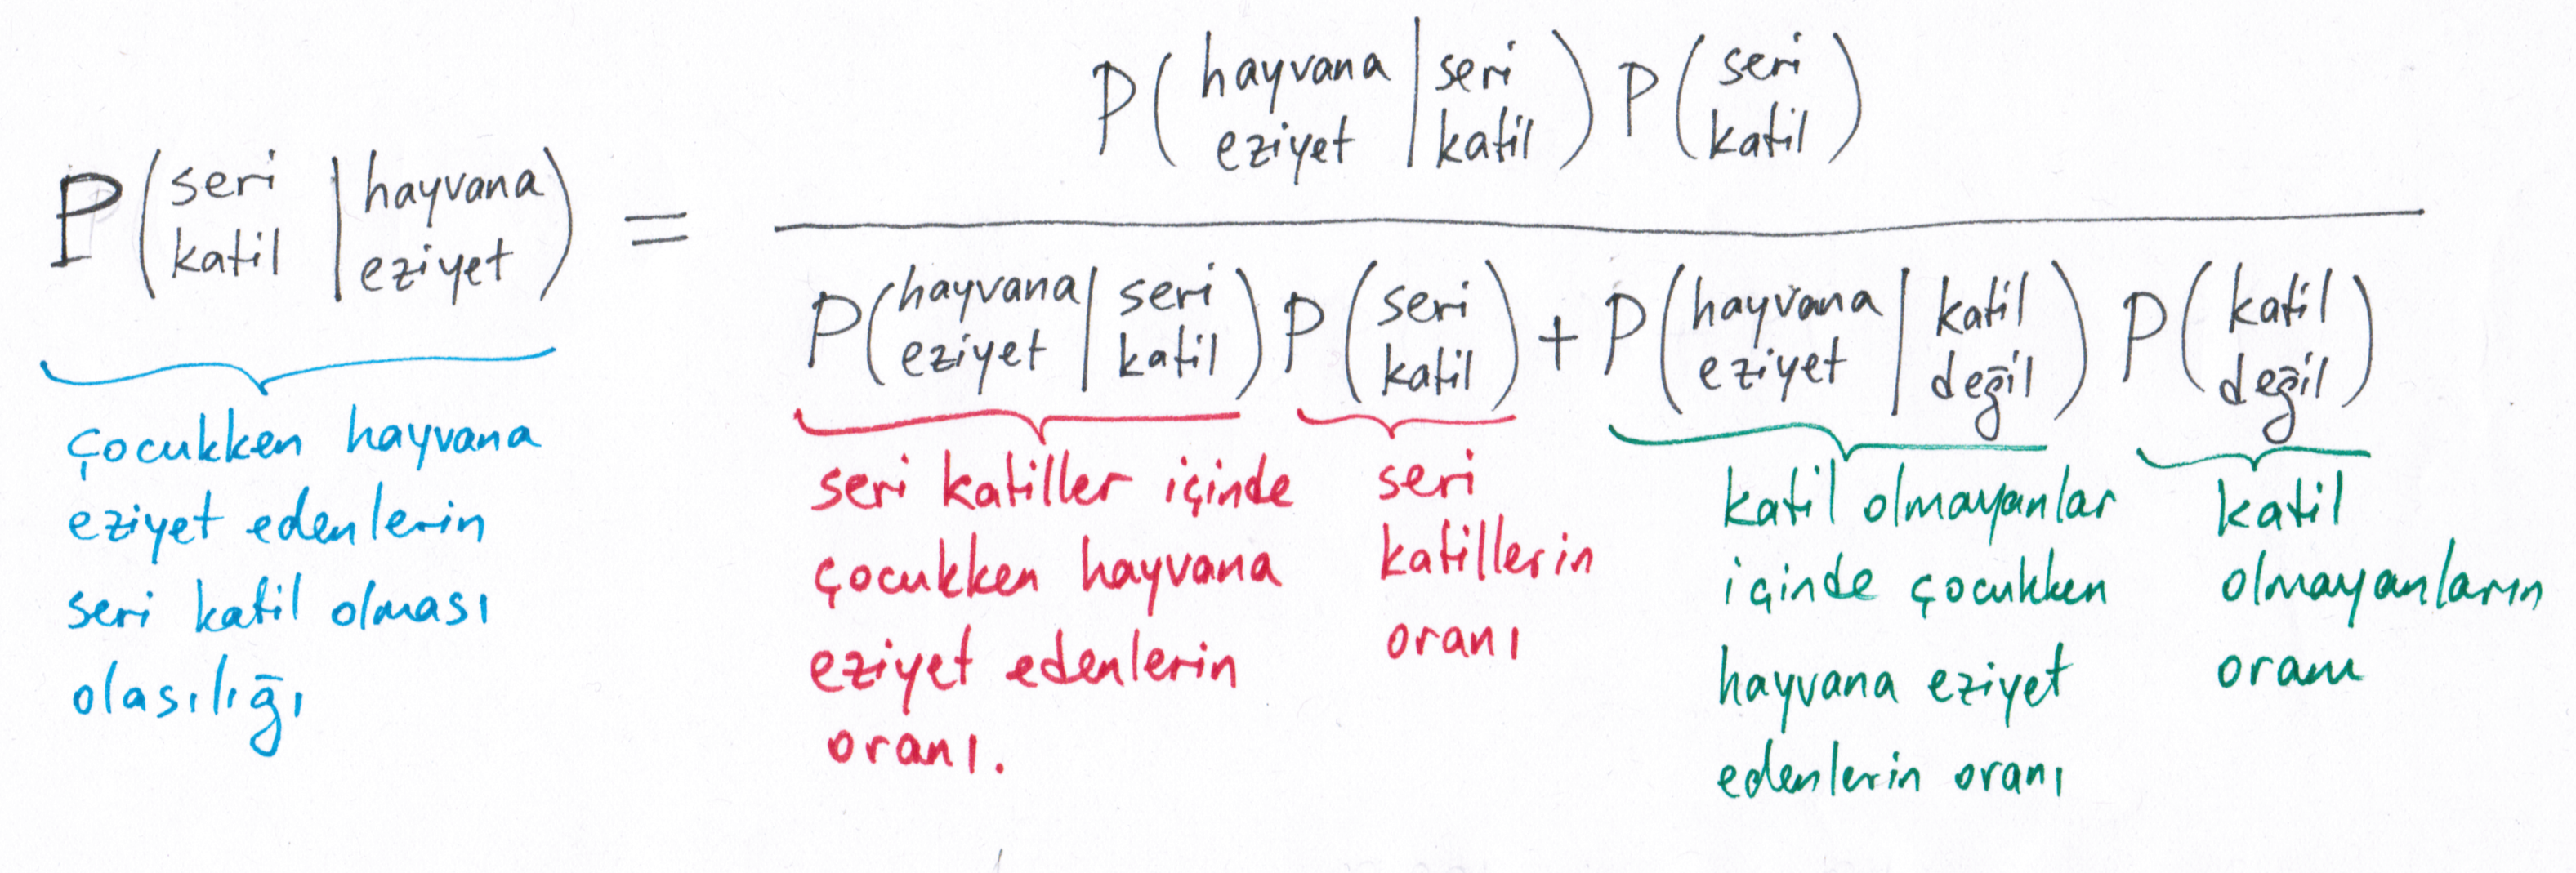 P(seri katil | hayvana eziyet) =
P(hayvana eziyet | seri katil) P(seri katil)
P(hayvana eziyet | seri katil) P(seri katil) + P(hayvana eziyet | katil değil) P(katil değil)
çocukken hayvana
eziyet edenlerin
seri katil olması
olasılığı
seri katiller içinde
çocukken hayvana
eziyet edenlerin
oranı.
seri
katillerin
oranı
katil olmayanlar
içinde çocukken
hayvana eziyet
edenlerin oranı
katil
olmayanların
oranı